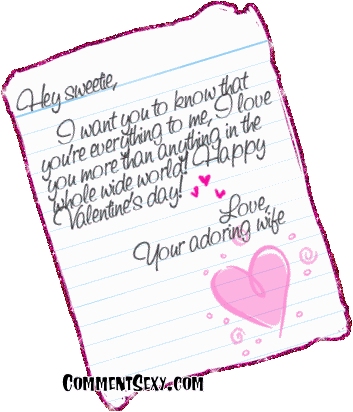 Hey sweetie,
I want you to know that
you're everything to me, I love
you more than anything in the
whole wide world! Happy
Valentine's day!
Love,
Your adoring wife
CommentSexy.com